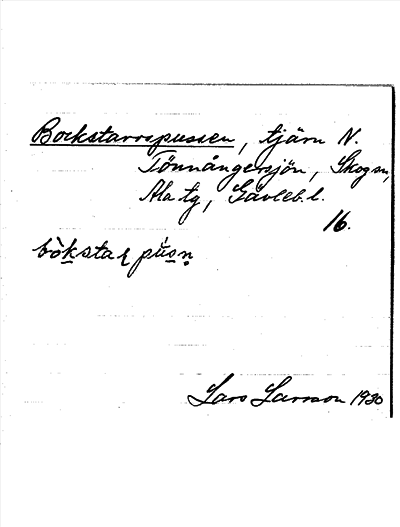 Bockstarrspussen, tjärn N.
Tönnångersjön, Skog sn,
Ala tg, Gävleb. l.
16.
bòkstaʀ pùsn̥
Lars Larsson 1930